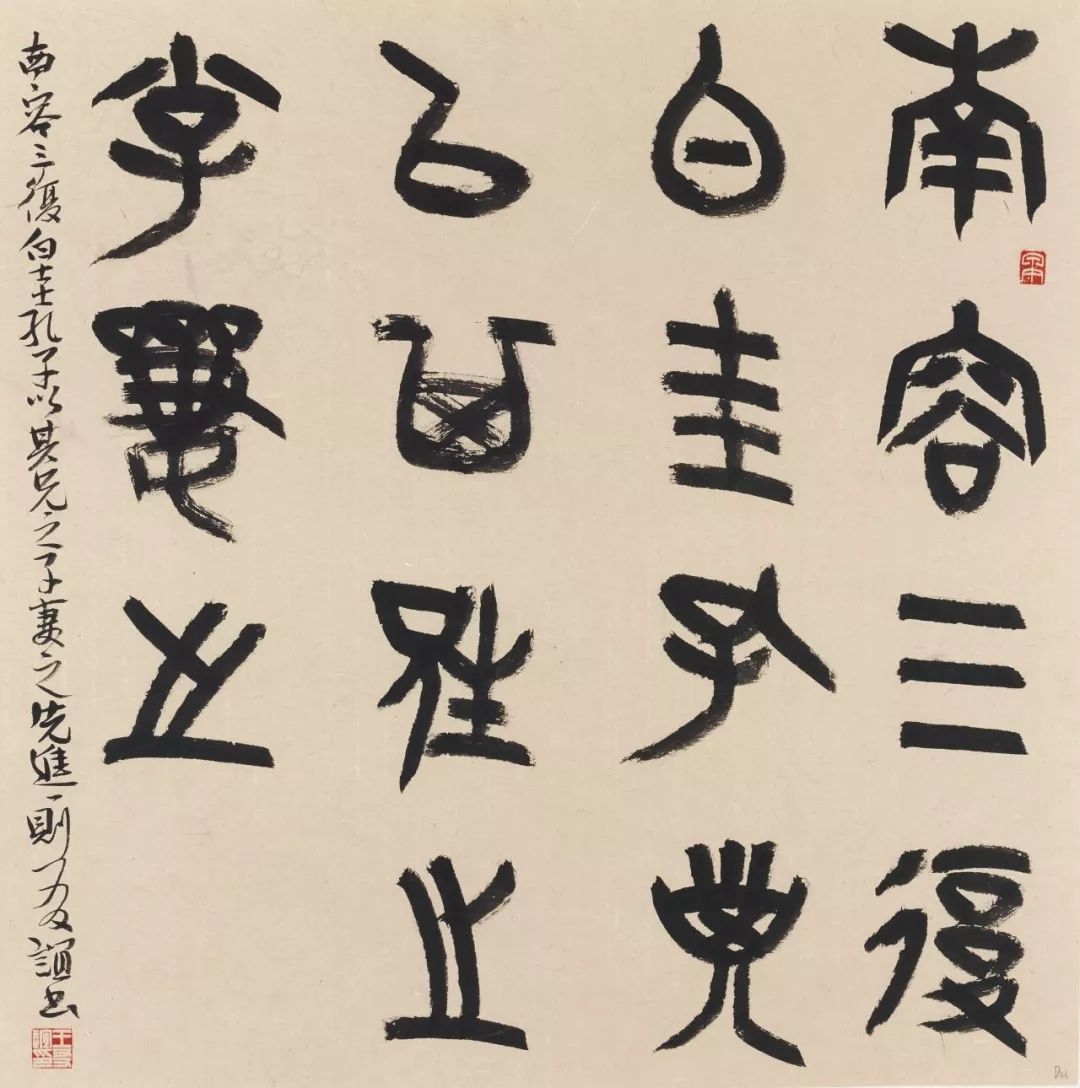 南容三復
白圭孔子
以其兄之
子妻之
南容三復白圭孔子以其兄之子妻之先進一則友誼書